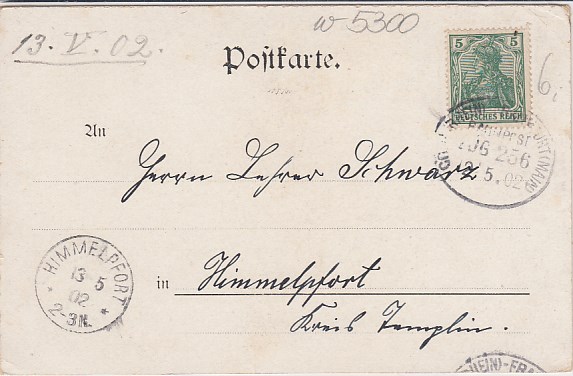 13. V. 02.
w 5300
Postkarte.
5 5
DEUTSCHES REICH
6
Bahnpost
ZUG 256
5.02
An
Herrn Lehrer Schwarz
HIMMELPFORT
13 5
02
2-3N.
in Himmelpfort
Kreis Templin.
(RHEIN)-FRA